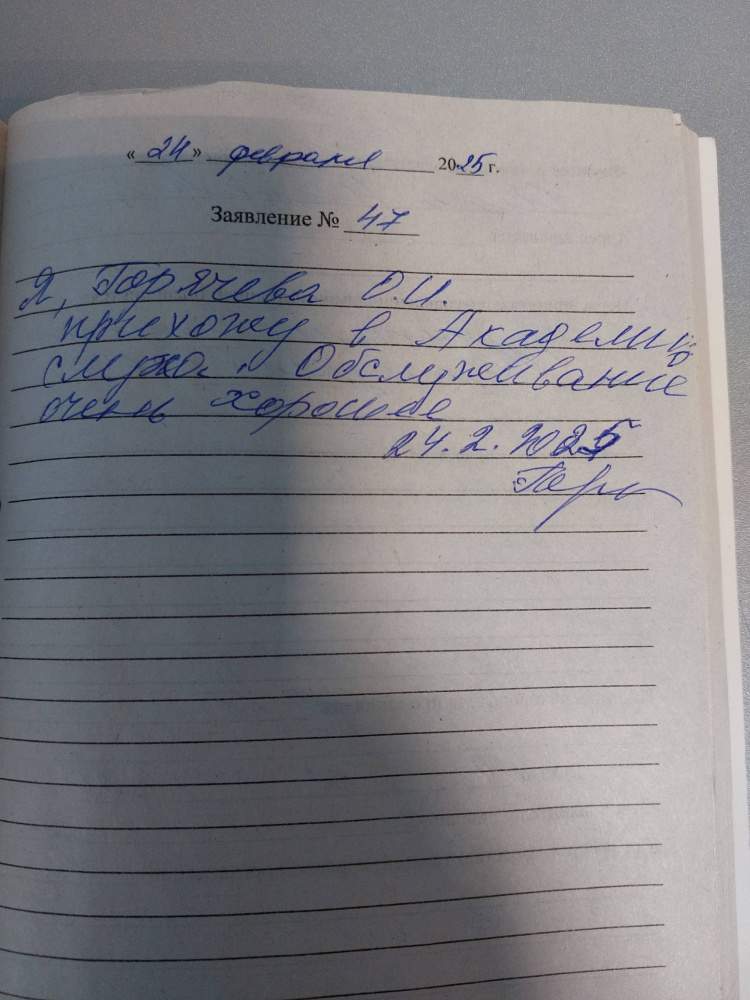 «24» февраля 2025 г.
Заявление № 47
Я, Горячева О.И.
прихожу в Академию
слуха. Обслуживание
очень хорошее
24.2.2025